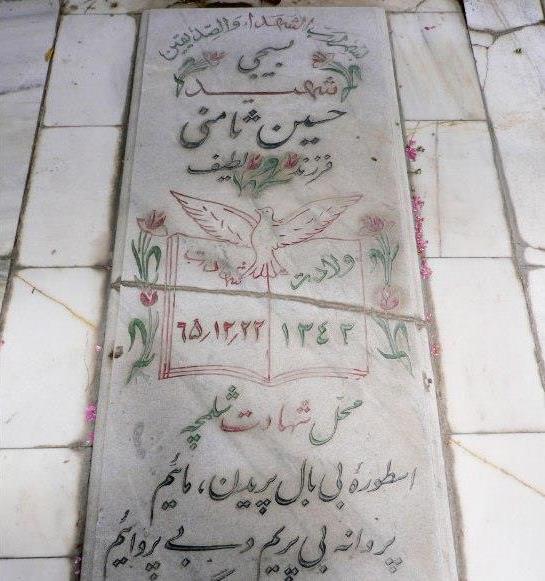 بسم رب الشهداء والصدیقین
بسیجی
شهید
حسین ثامنی
فرزند لطیف
ولادت شهادت
۱۳٤۲ ٦٥٫۱۲٫۲۲
محل شهادت شلمچه
اسطورهٔ بی بال پریدن، مائیم
پروانه بی پریم و بی پروائیم